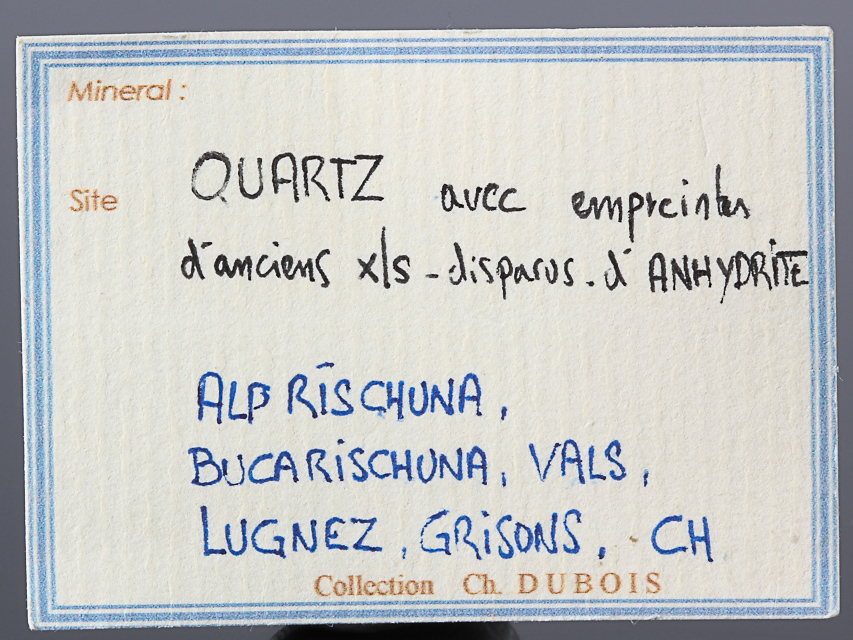 Mineral :
Site
QUARTZ avec empreintes
d'anciens xls - disparus - d'ANHYDRITE
ALP RISCHUNA,
BUCARISCHUNA, VALS,
LUGNEZ, GRISONS, CH
Collection Ch. DUBOIS